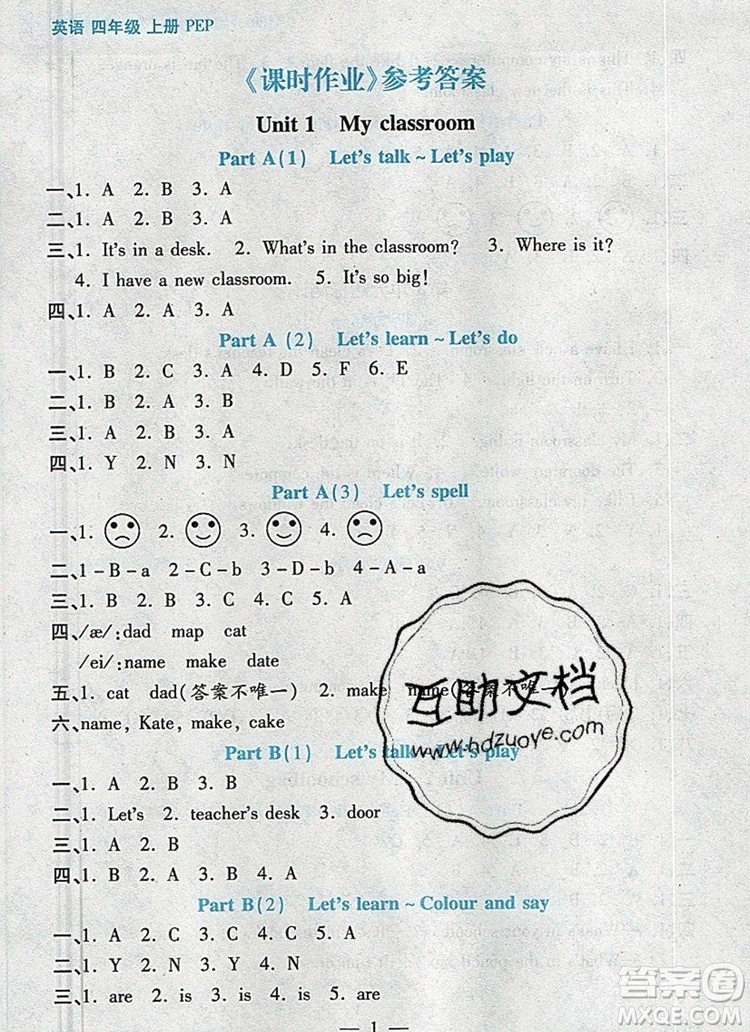 英语 四年级 上册 PEP
《课时作业》参考答案
Unit 1 My classroom
Part A(1) Let's talk ~ Let's play
一、1. A 2. B 3. A
二、1. A 2. B 3. A
三、1. It's in a desk. 2. What's in the classroom? 3. Where is it?
4. I have a new classroom. 5. It's so big!
四、1. A 2. A 3. A
Part A (2) Let's learn ~ Let's do
一、1. B 2. C 3. A 4. D 5. F 6. E
二、1. B 2. A 3. B
三、1. A 2. B 3. A
四、1. Y 2. N 3. N
Part A(3) Let's spell
一、1. 2. 3. 4.
二、1-B-a 2-C-b 3-D-b 4-A-a
三、1. B 2. B 3. C 4. C 5. A
四、/æ/:dad map cat
/ei/:name make date
五、1. cat dad(答案不唯一) 2. make name(答案不唯一)
六、name, Kate, make, cake
Part B(1) Let's talk ~ Let's play
一、1. A 2. B 3. B
二、1. Let's 2. teacher's desk 3. door
三、1. A 2. B
四、1. B 2. B 3. B 4. A
Part B(2) Let's learn ~ Colour and say
一、1. A 2. C 3. C 4. C 5. A
二、1. Y 2. N 3. N 4. Y
三、1. are 2. is 3. is 4. is 5. are
— 1 —
互助文档
www.hdzuoye.com
答案圈
MXQE.COM